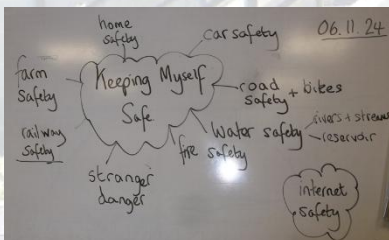 home
safety
car safety
06.11.24
farm
safety
Keeping Myself
Safe
road
safety + bikes
railway
safety
water safety
rivers + streams
reservoir
fire
safety
stranger
danger
internet
safety